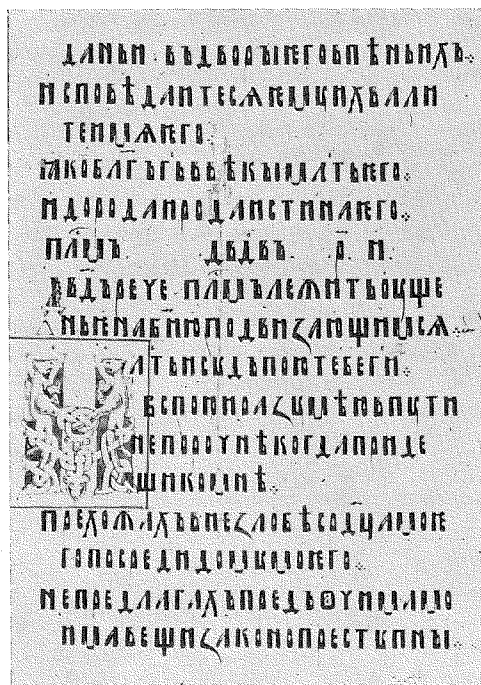 даньи · въдворъıѥговпѣньихъ·:
исповѣдаитесѧѥмꙋихъвали
теимѧѥго·:
ꙗкоблг҃ъг҃ьввѣкъıмлтьѥго·:
идородаиродаистинаѥго·:
пл҃мъ · дв҃двъ · р҃ · и ·
дв҃дърече пл҃мълежитьоуще
подвизающимсѧ·:
лтьисꙋдъпоютебег҃и·
ъспоюиразꙋмѣювпꙋти
непороунѣкогдапоиде
шикомнѣ·:
прехожахъвнезлобѣсрд҃цамоѥ
гопосредидомꙋмоѥго·:
непредлагахъпредъꙩчимамо
имавещизаконопрестꙋпнъı·: